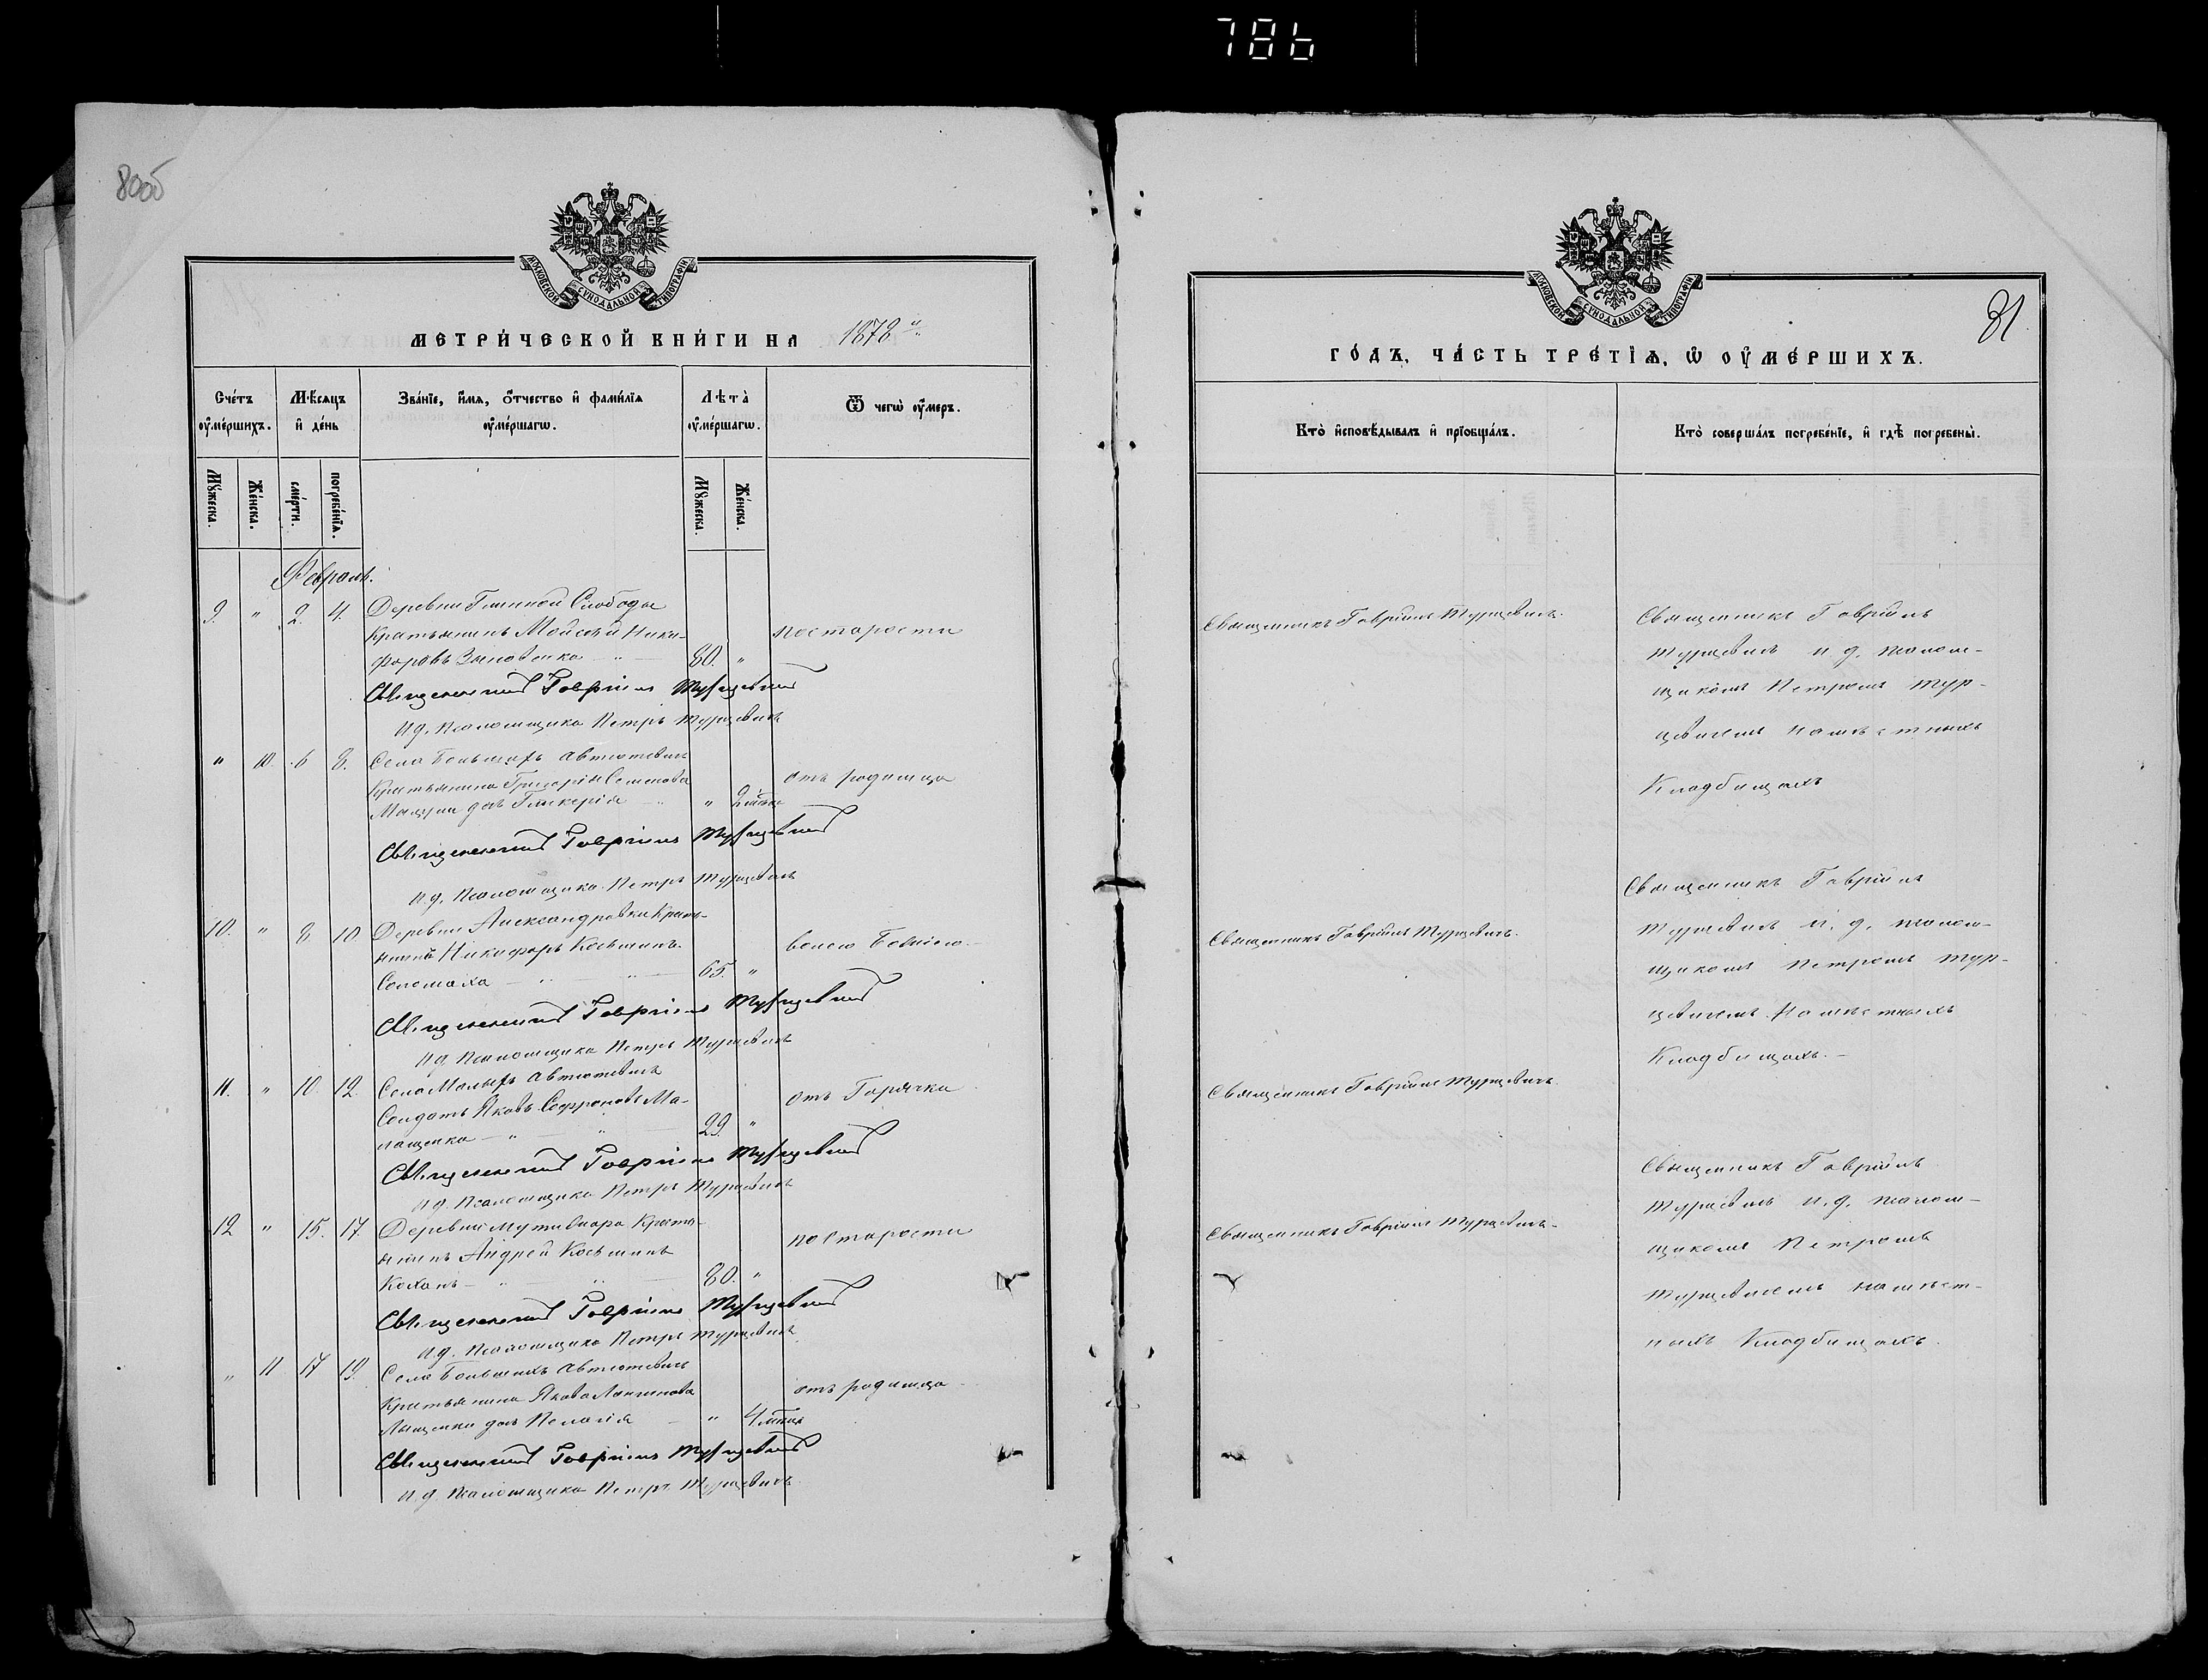 786
80об
МОСКОВСКОЙ СѴНОДАЛЬНОЙ ТИПОГРАФІИ
МЕТРИ́ЧЕСКОЙ КНИ́ГИ НА 1878 й
Сче́тъ ᲂу҆ме́ршихъ.
Мѣ́сяцъ и҆ де́нь
Зва́нїе, и҆́мѧ, ѻ҆́тчество и҆ фами́лїѧ ᲂу҆ме́ршагѡ.
Лѣта̀ ᲂу҆ме́ршагѡ.
Ѿ чегѡ̀ ᲂу҆́меръ.
Мꙋ́жеска.
Же́нска.
сме́рти.
погребе́нїѧ.
Мꙋ́жеска.
Же́нска.
Февраль.
9. " 2. 4. Деревни Глинной Слободы
Крестьянинъ Мойсей Ники-
форовъ Зиновенко 80. " по старости
Священникъ Гавріилъ Турцевичъ
И д. Псаломщика Петръ Турцевичъ
" 10 6 8. Села Большихъ Автютевичъ
Крестьянина Григорія Семенова
дочь Гликерія " 2 отъ родимца
Священникъ Гавріилъ Турцевичъ
И.д. Псаломщика Петръ Турцевичъ
10. " 8 10. Деревни Александровки Кресть-
янинъ Никифоръ Косьминъ
Соломаха 65. " волею Божіею
Священникъ Гавріилъ Турцевичъ
И д. Псаломщика Петръ Турцевичъ
11. " 10. 12. Села Малыхъ Автютевичъ
Солдатъ Яковъ Софроновъ Ма-
лащенко " " 29. " отъ Горячки
Священникъ Гавріилъ Турцевичъ
И д. Псаломщика Петръ Турцевичъ
12 " 15. 17. Деревни Кресть-
янинъ Андрей Косьминъ
Коханъ " " 80. " по Старости
Священникъ Гавріилъ Турцевичъ
И д. Псаломщика Петръ Турцевичъ
" 11 17 19. Села Большихъ Автютевичъ
Крестьянина Якова Лонгинова
дочь Пелагія " 4 отъ родимца
Священникъ Гавріилъ Турцевичъ
И.д. Псаломщика Петръ Турцевичъ
81
МОСКОВСКОЙ СѴНОДАЛЬНОЙ ТИПОГРАФІИ
ГО́ДЪ, ЧА́СТЬ ТРЕ́ТЇѦ, Ѡ҆ ОУ҆МЕ́РШИХЪ.
Кто̀ и҆сповѣ́дывалъ и҆ прїѡбща́лъ.
Кто̀ соверша́лъ погребе́нїе, и҆ гдѣ̀ погребены̀.
Священникъ Гавріилъ Турцевичъ.
Священникъ Гавріилъ
Турцевичъ и. д. псалом-
щикомъ Петромъ Тур-
цевичемъ на мѣстныхъ
Кладбищахъ
Священникъ Гавріилъ Турцевичъ.
Священникъ Гавріилъ
Турцевичъ и. д. псалом-
щикомъ Петромъ Тур-
цевичемъ на мѣстныхъ
Кладбищахъ.
Священникъ Гавріилъ Турцевичъ
Священникъ Гавріилъ Турцевичъ.
Священникъ Гавріилъ
Турцевичъ и.д. псалом-
щикомъ Петромъ
Турцевичемъ на мѣст-
ныхъ Кладбищахъ.